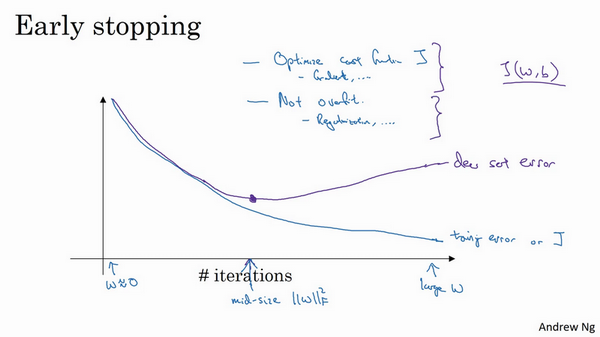 Early stopping
— Optimize cost function J
- Gradient, ....
J(w,b)
— Not overfit.
- Regularization, ....
dev set error
training error or J
# iterations
w≈0
mid-size ||w||²_F
large w
Andrew Ng